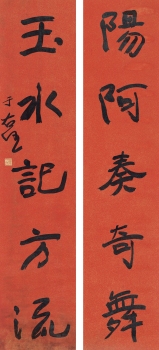 陽阿奏奇舞
玉水記方流
于右任